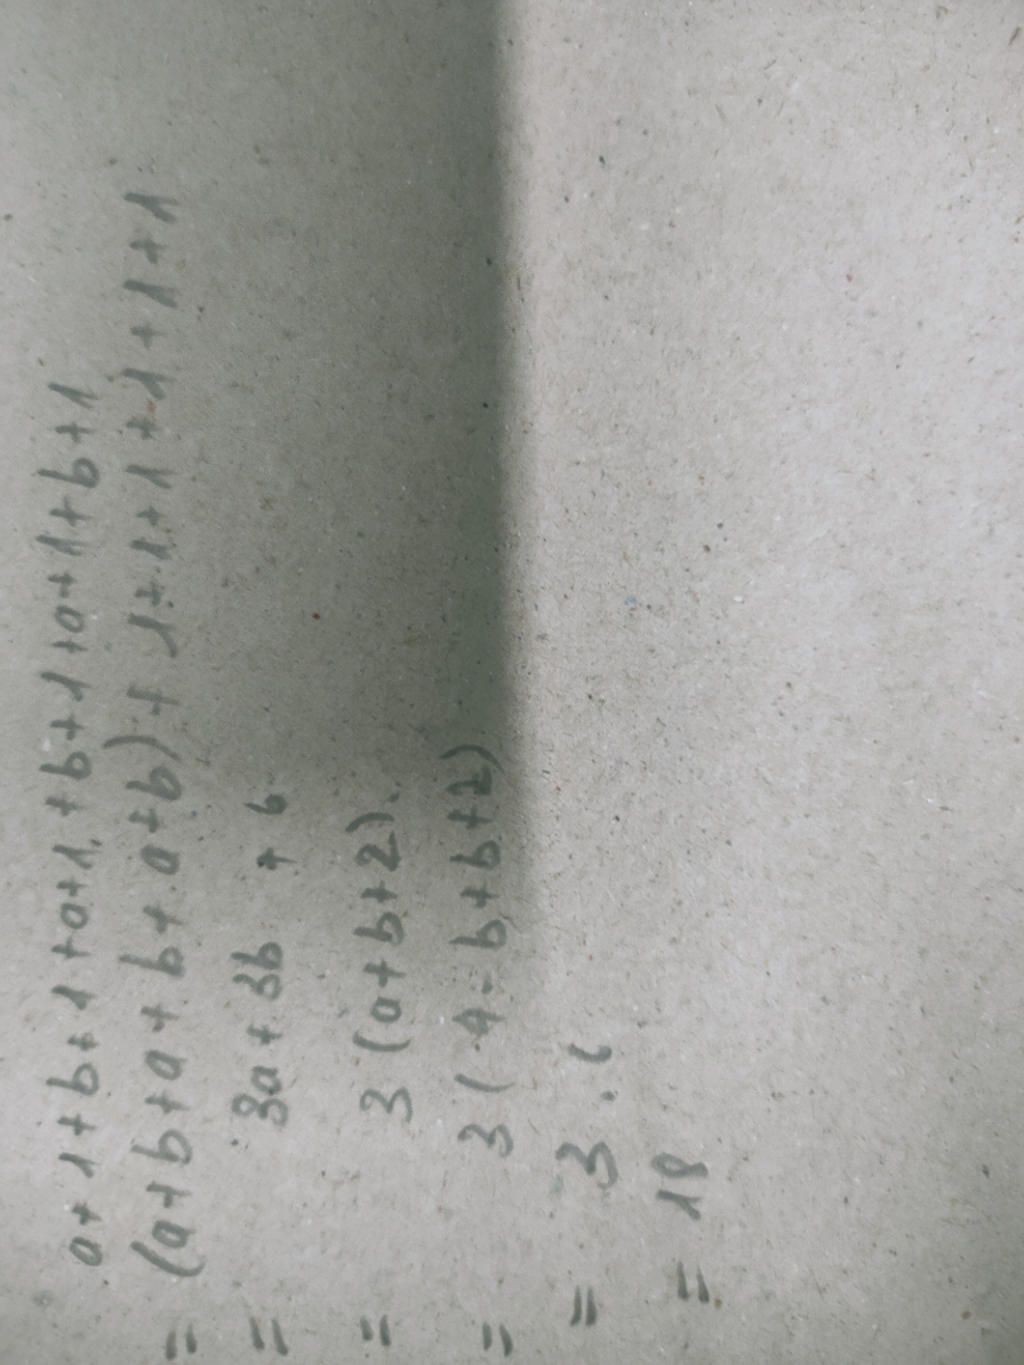 a+1+b+1+a+1+b+1+a+1+b+1
= (a+b+a+b+a+b)+1+1+1+1+1+1
= 3a+3b + 6
= 3(a+b+2).
= 3(4-b+b+2)
= 3.6
= 18